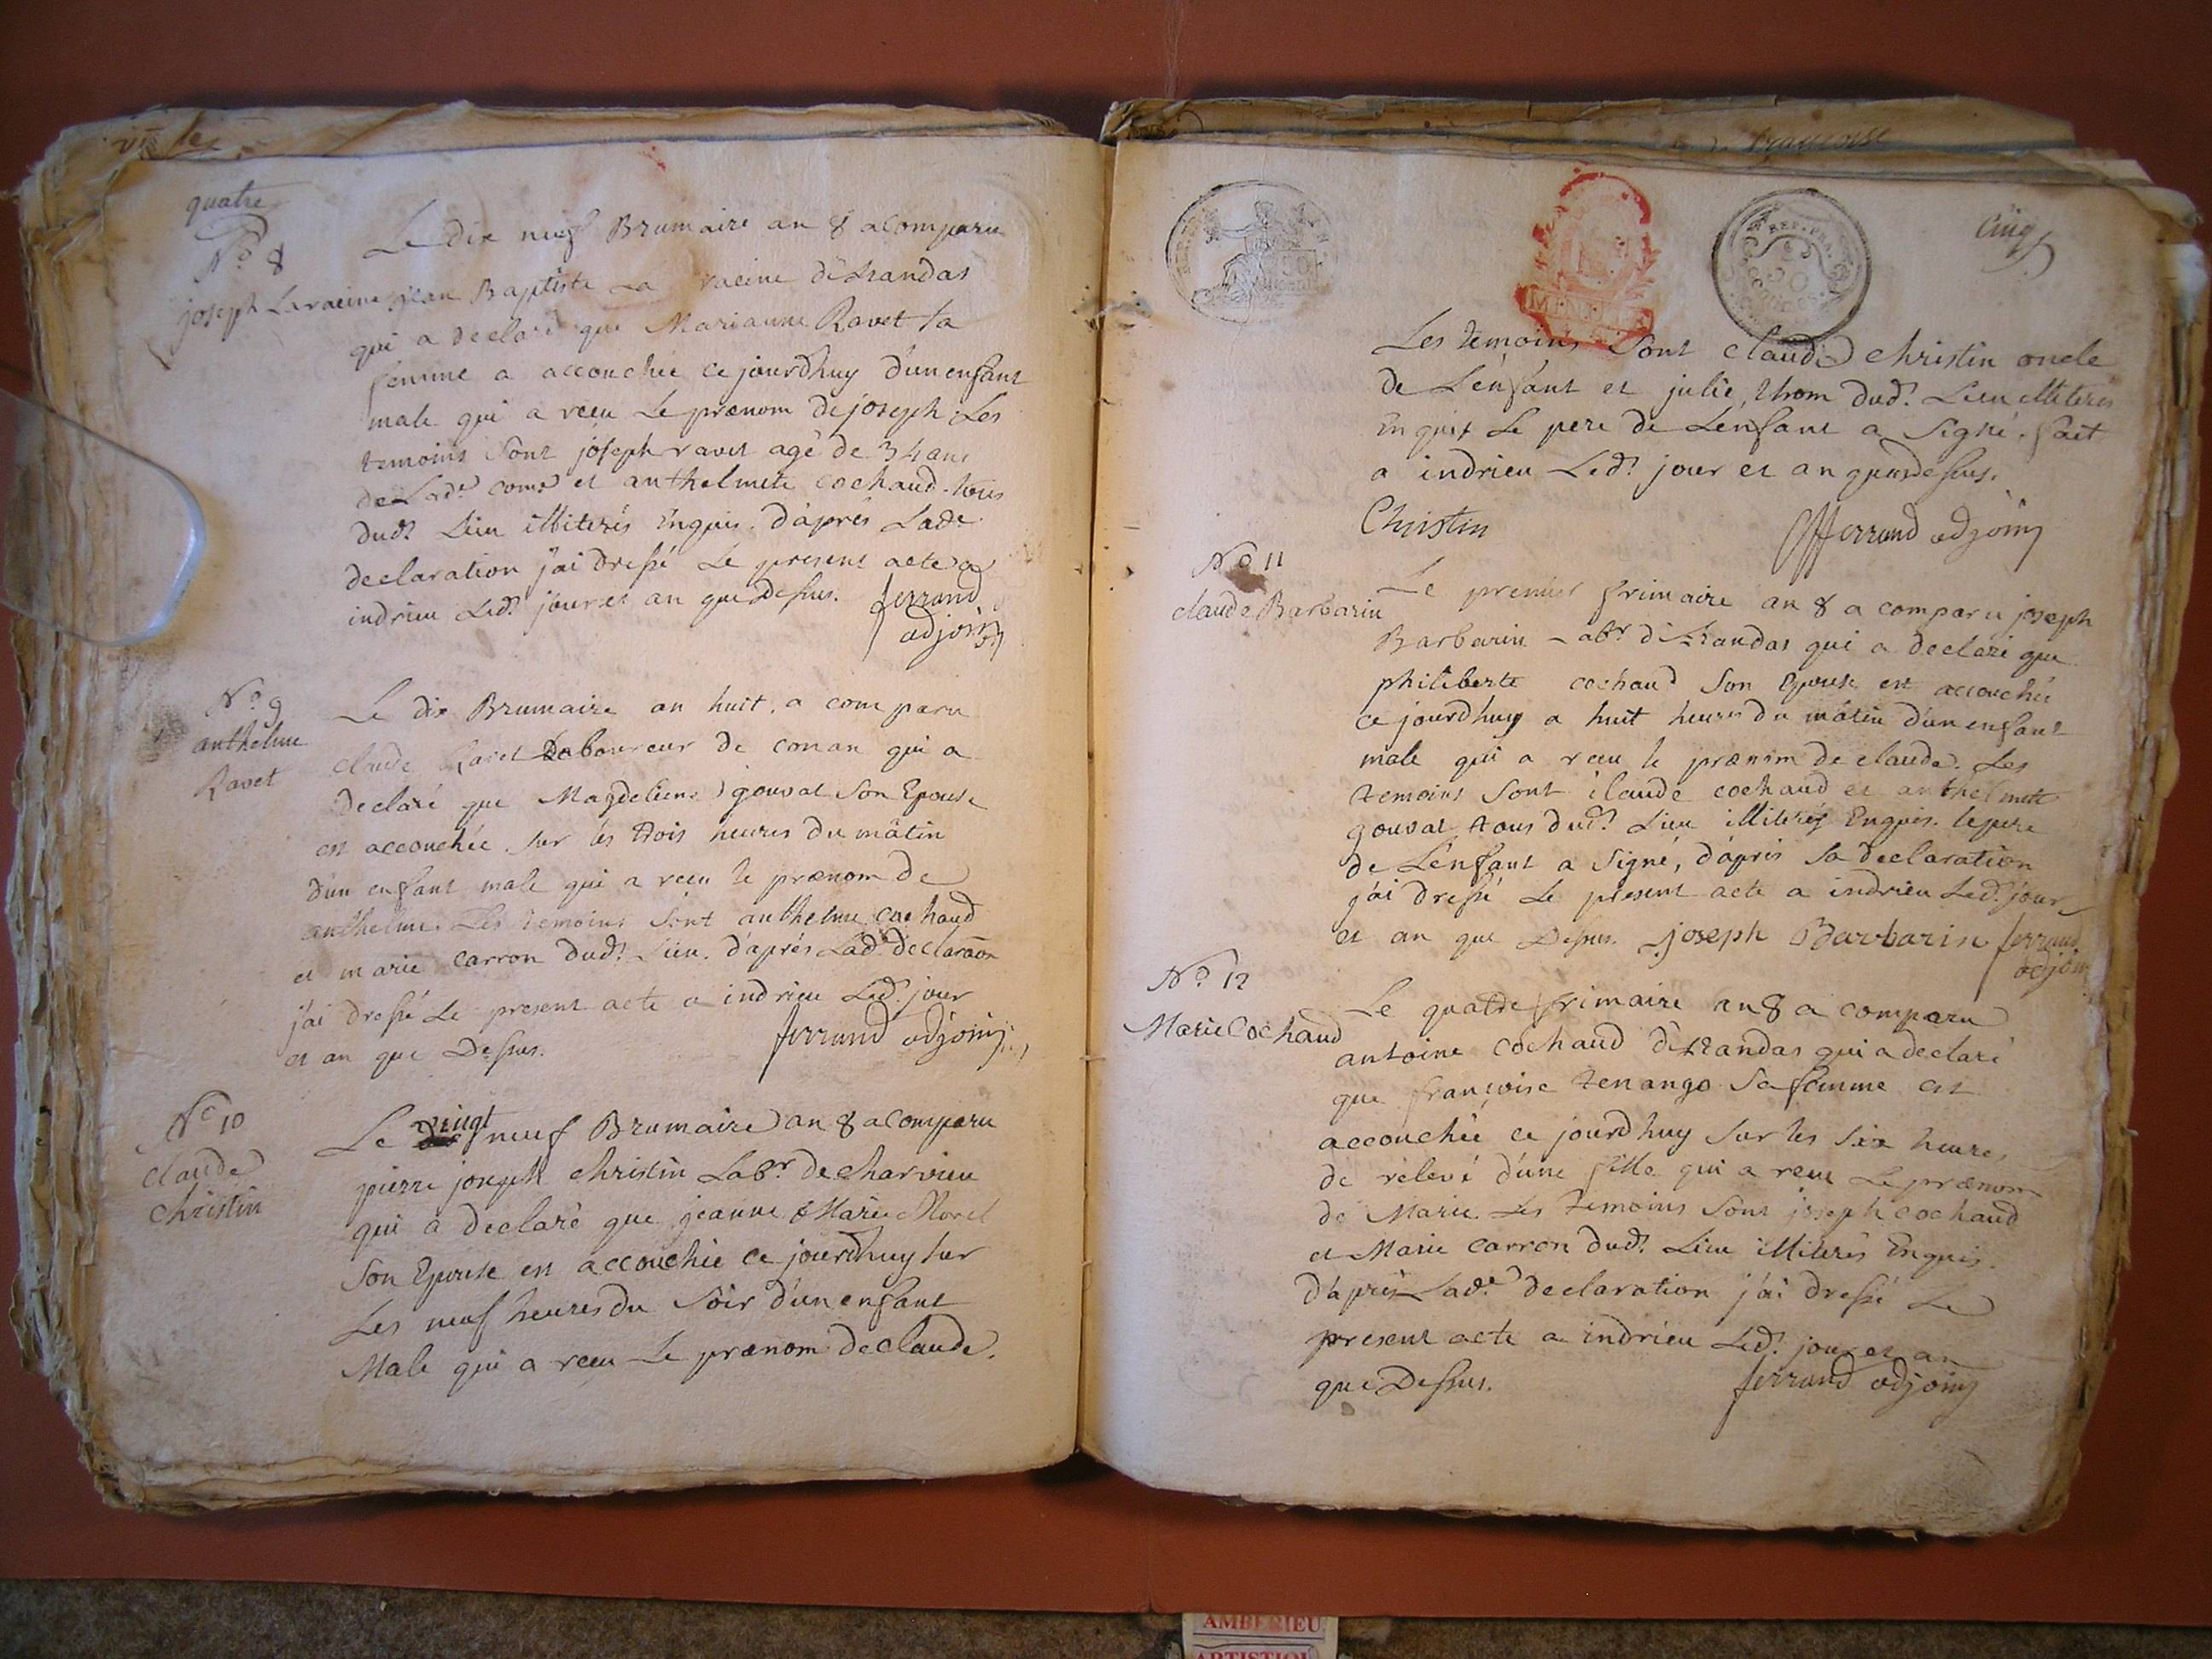 quatre
N.º 8
joseph Laracine
Le dix neuf Brumaire an 8 a Comparu
jean Baptiste La racine d'Arandas
qui a declaré que Marianne Ravet sa
femme a accouchée ce jourdhuy d'un enfant
male qui a reçu Le prænom de joseph. Les
temoins sont joseph ravet agé de 34 ans
de Lad.e com.e et anthelmete Cochaud. tous
dud.t Lieu illiterés Enquis. d'après Lad.e
declaration j'ai dressé Le present acte a
indrieu Led.t jour et an que Dessus. ferrand
adjoint
N.º 9
anthelme
Ravet
Le dix Brumaire an huit. a comparu
claude Ravet Laboureur de conan qui a
Declaré que Magdeleine gouvat Son Epouse
est accouchée. sur les trois heures du mâtin
d'un enfant male qui a reçu le prænom de
anthelme. Les temoins sont anthelme cochaud
et marie Carron dud.t Lieu. d'après Lad.e declaraõn
j'ai dressé Le present acte a indrieu Led.t jour
et an que Dessus. ferrand adjoint
N.º 10
claude
christin
Le vingt neuf Brumaire an 8 a Comparu
pierre joseph christin Lab.r de charvieu
qui a declaré que jeanne Marie Morel
Son Epouse est accouchée ce jourdhuy sur
Les neuf heures du Soir d'un enfant
Male qui a reçu Le prænom de claude.
cinq
REP. FRA.
50
Les temoins sont claude christin oncle
de L'enfant et julie thom dud.t Lieu illiterés
Enquis Le pere de L'enfant a Signé. fait
a indrieu Led.t jour et an que dessus.
Christin ferrand adjoint
N.º 11
claude Barbarin
Le premier frimaire an 8 a comparu joseph
Barbarin Lab.r d'Arandas qui a declaré que
philiberte cochaud Son Epouse est accouchée
ce jourdhuy a huit heures du mâtin d'un enfant
male qui a reçu le prænom de claude. Les
temoins sont claude cochaud et anthelmete
gouvat tous dud.t Lieu illiterés Enquis. le pere
de L'enfant a Signé, d'après sa declaration
j'ai dressé Le present acte a indrieu Led.t jour
et an que Dessus. joseph Barbarin ferrand
adjoint
N.º 12
Marie Cochaud
Le quatre frimaire an 8 a comparu
antoine Cochaud d'Arandas qui a declaré
que françoise tenango Sa femme est
accouchée ce jourdhuy sur les six heures
de relevé d'une fille qui a reçu Le prænom
de Marie Les temoins sont joseph cochaud
et Marie carron dud.t Lieu illiterés Enquis.
d'après Lad.e declaration j'ai dressé Le
present acte a indrieu Led.t jour et an
que Dessus. ferrand adjoint
AMBERIEU